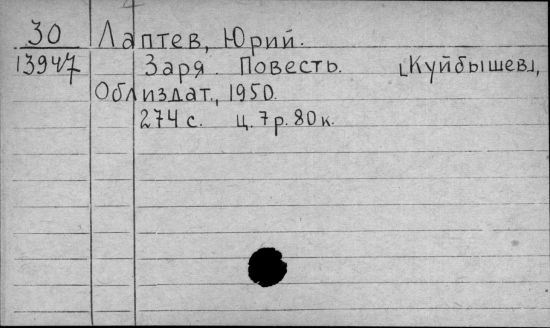 30 Лаптев, Юрий.
13947 Заря. Повесть. [Куйбышев],
Облиздат., 1950.
274 с. ц. 7 р. 80 к.